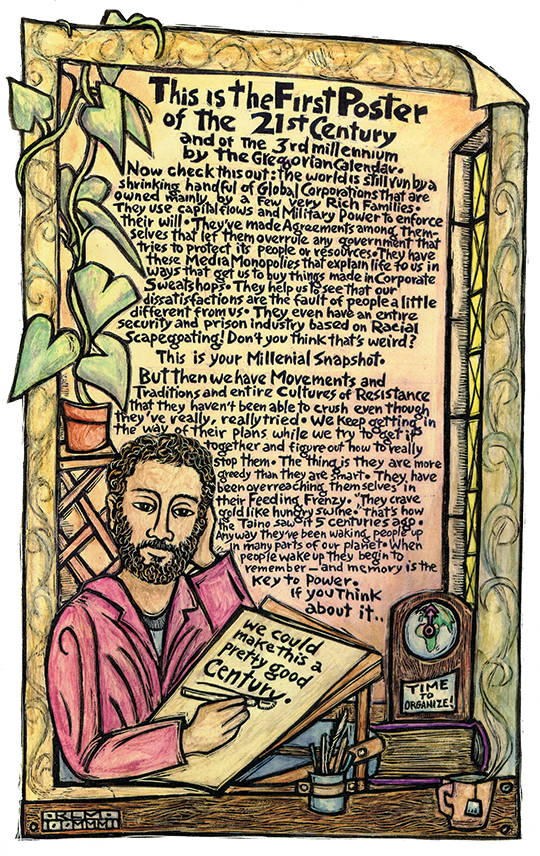 This is the First Poster
of the 21st Century
and of the 3rd millennium
by the Gregorian Calendar.
Now check this out: the world is still run by a
shrinking handful of Global Corporations that are
owned mainly by a few very Rich Families.
They use capital flows and Military Power to enforce
their will. They've made Agreements among them-
selves that let them overrule any government that
tries to protect its people or resources. They have
these Media Monopolies that explain life to us in
ways that get us to buy things made in Corporate
Sweatshops. They help us to see that our
dissatisfactions are the fault of people a little
different from us. They even have an entire
security and prison industry based on Racial
Scapegoating! Don't you think that's weird?
This is your Millenial Snapshot.
But then we have Movements and
Traditions and entire Cultures of Resistance
that they haven't been able to crush even though
they've really, really tried. We keep getting in
the way of their plans while we try to get it
together and figure out how to really
stop them. The thing is they are more
greedy than they are smart. They have
been overreaching themselves in
their Feeding Frenzy. "They crave
gold like hungry swine" that's how
the Taino saw it 5 centuries ago.
Anyway they've been waking people up
in many parts of our planet. When
people wake up they begin to
remember — and memory is the
key to power.
If you think
about it..
we could
make this a
pretty good
Century.
TIME
TO
ORGANIZE!
RLM